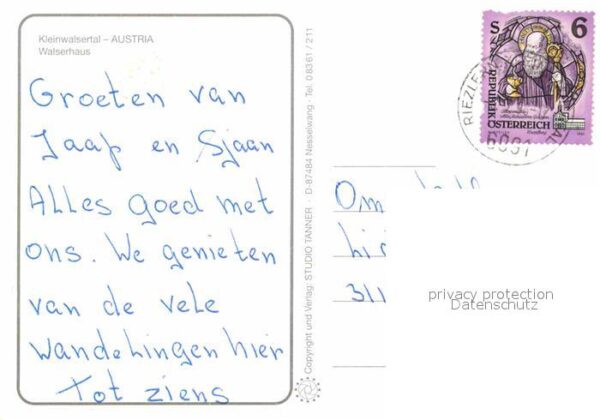 Kleinwalsertal – AUSTRIA
Walserhaus
Groeten van
Jaap en Sjaan
Alles goed met
ons. We genieten
van de vele
wandelingen hier
Tot ziens
Copyright und Verlag: STUDIO TANNER · D-87484 Nesselwang · Tel. 0 83 61 / 211
S 6
REPUBLIK
ÖSTERREICH
RIEZLE
Om
311
privacy protection
Datenschutz